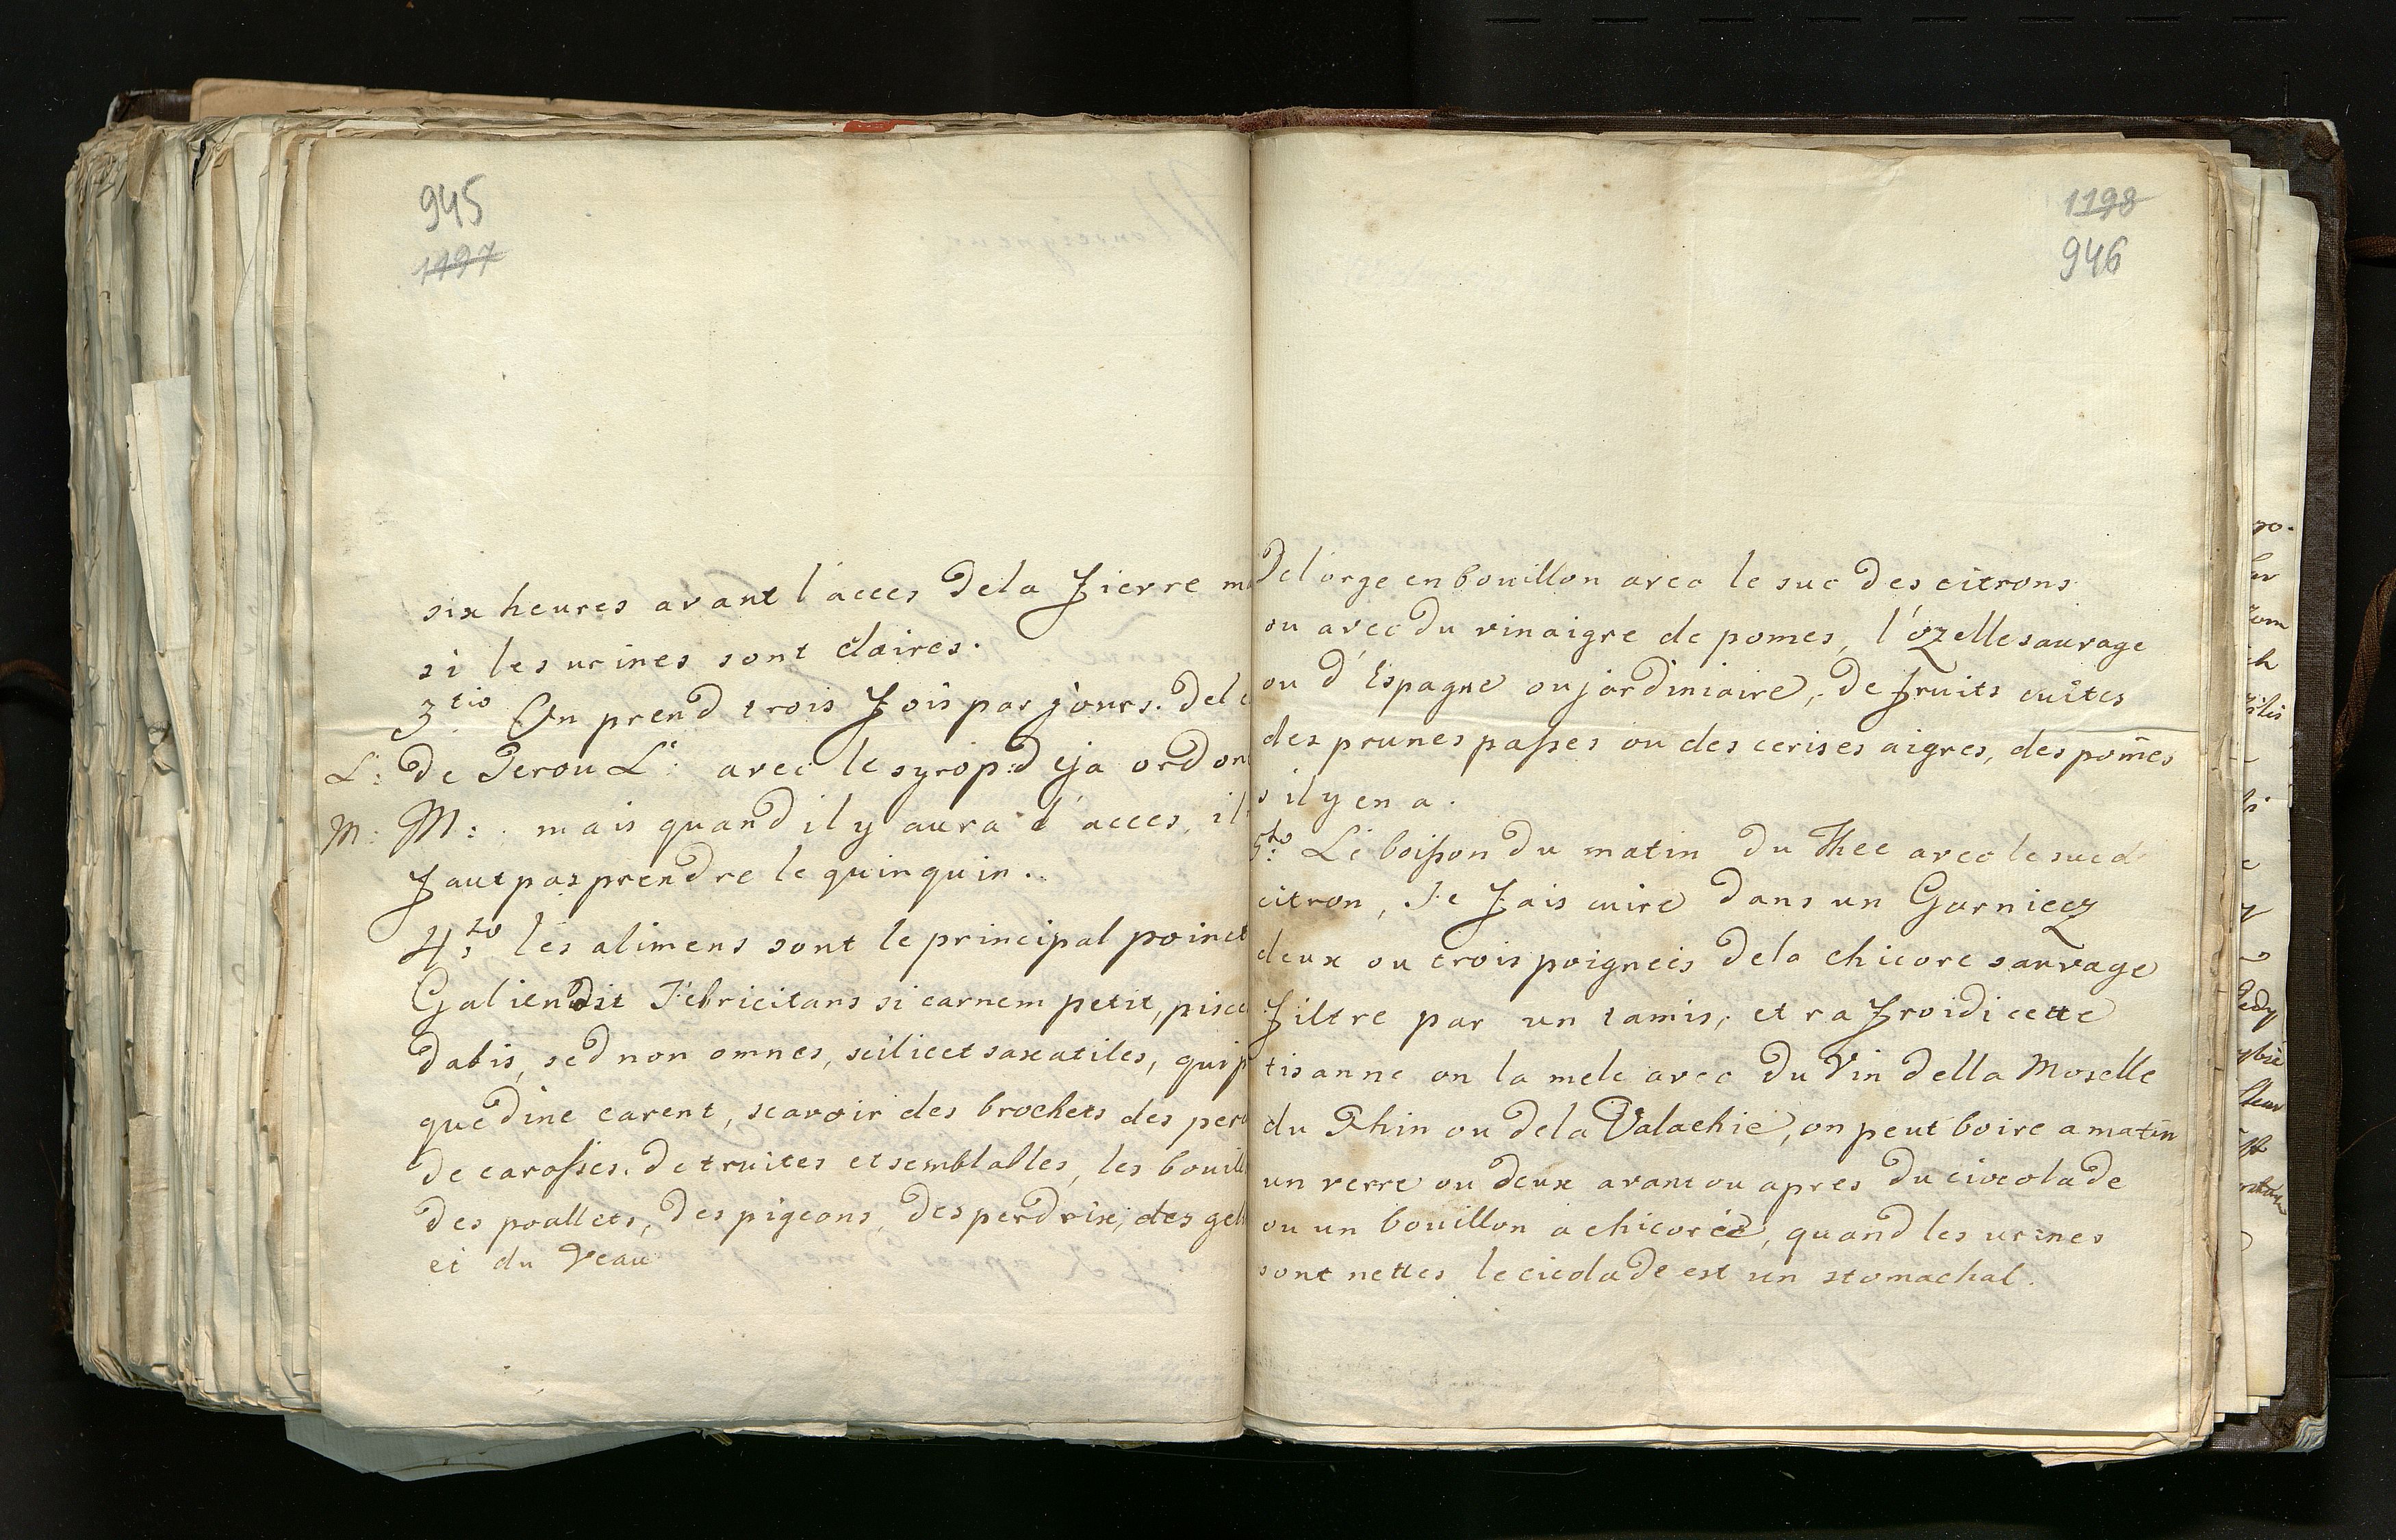 945
1197
six heures avant l'acces dela fievre
si les urines sont claires.
3tio On prend trois fois par jours. Del
L: de Perou L: avec le syrop deja ordon
M: M: mais quand il y aura l'acces, il
faut pas prendre le quinquin.
4to les alimens sont le principal poinct
Galien dit Febricitans si carnem petit, pisce
dabis, sed non omnes, scilicet saxatiles, qui
quedine carent, scavoir des brochets des per
de carasses, de truites et semblables, les bouill
des poullets, des pigeons, des perdrix, des gel
et du Veau
1198
946
Del orge en bouillon avec le suc des citrons
ou avec du vinaigre de pomes, l'ozelle sauvage
ou d'Espagne ou jardiniaire, de fruits cuites
des prunes passes ou des cerises aigres, des pom̃es
s il y en a.
5to: Le boisson du matin du Thee avec le suc d
citron, Je fais cuire dans un Garniecz
deux ou trois poignees dela chicore sauvage
filtre par un tamis, et rafroidi cette
tisanne on la mele avec du Vin della Moselle
du Rhin ou dela Valachie, on peut boire a matin
un verre ou deux avant ou apres du cicolade
ou un bouillon a chicorée, quand les urines
sont nettes le cicolade est un stomachal.